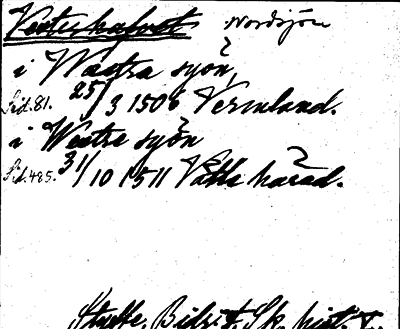 Vesterhafvet Nordsjön
i Wästra syön,
Sid. 81. 25/3 1506 Vermland.
i Westre syön
Sid. 485. 31/10 1511 Vätte härad.
Styffe, Bidr. t. Sk. hist. V.